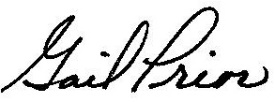 Gail Prior